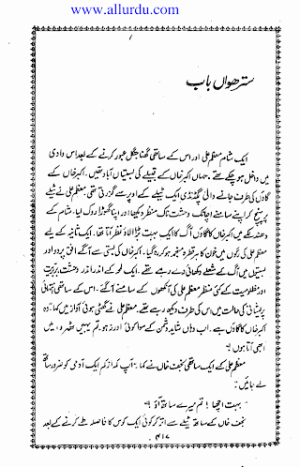 www.allurdu.com
سترھواں باب
ایک شام معظم علی اور اس کے ساتھی گھنا جنگل عبور کرنے کے بعد اس وادی
میں داخل ہو چکے تھے۔ جہاں اکبر خاں کے قبیلے کی بستیاں آباد تھیں۔ اکبر خاں کے
گاؤں کی طرف جانے والی پگڈنڈی ایک ٹیلے کے اوپر سے گزرتی تھی معظم علی نے ٹیلے
پر پہنچ کر اپنے سامنے اچانک دہشت ناک منظر دیکھا اور اپنا گھوڑا روک لیا۔ شام کے
دھندلکے میں اکبر خاں کا گاؤں آگ کا ایک بہت بڑا الاؤ نظر آتا تھا۔ ایک ثانیے کے لیے
معظم علی کی رگوں میں خون کا ہر قطرہ منجمد ہو کر رہ گیا۔ اکبر خاں کی بستی سے آگے افق پر دو اور
بستیوں میں آگ کے شعلے دکھائی دے رہے تھے۔ ایک لمحہ کے اندر اندر وحشت، بربریت
اور مظلومیت کے کئی منظر معظم علی کی آنکھوں کے سامنے آ گئے۔ اس کے ساتھی انتہائی
پریشانی کی حالت میں اس کی طرف دیکھ رہے تھے۔ معظم علی نے گھٹی ہوئی آواز میں کہا "وہ
اکبر خاں کا گاؤں ہے۔ اب وہاں شاید دشمن کے سوا کوئی اور نہ ہو۔ تم یہیں ٹھہرو، میں
ابھی آتا ہوں!"
معظم علی کے ایک ساتھی نجف خاں نے کہا۔ "آپ کم از کم ایک آدمی کو ضرور ساتھ
لے جائیں"۔
"بہت اچھا! تم میرے ساتھ آؤ۔"
نجف خاں کے ساتھ ٹیلے سے اتر کر کوئی ایک کوس کا فاصلہ طے کرنے کے بعد
۴۱۷